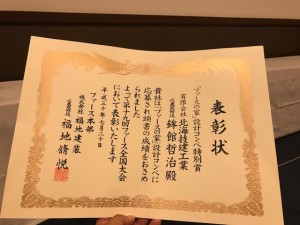 表彰状
「ファースの家」設計コンペ特別賞
有限会社 北海技建工業
代表取締役 鉾館哲治 殿
貴社は「ファースの家」設計コンペに
応募され頭書の成績をおさめ
られました
よって第十九回ファース全国大会
において表彰いたします
平成三十年七月二十日
ファース本部
株式会社 福地建装
代表取締役 福地脩悦